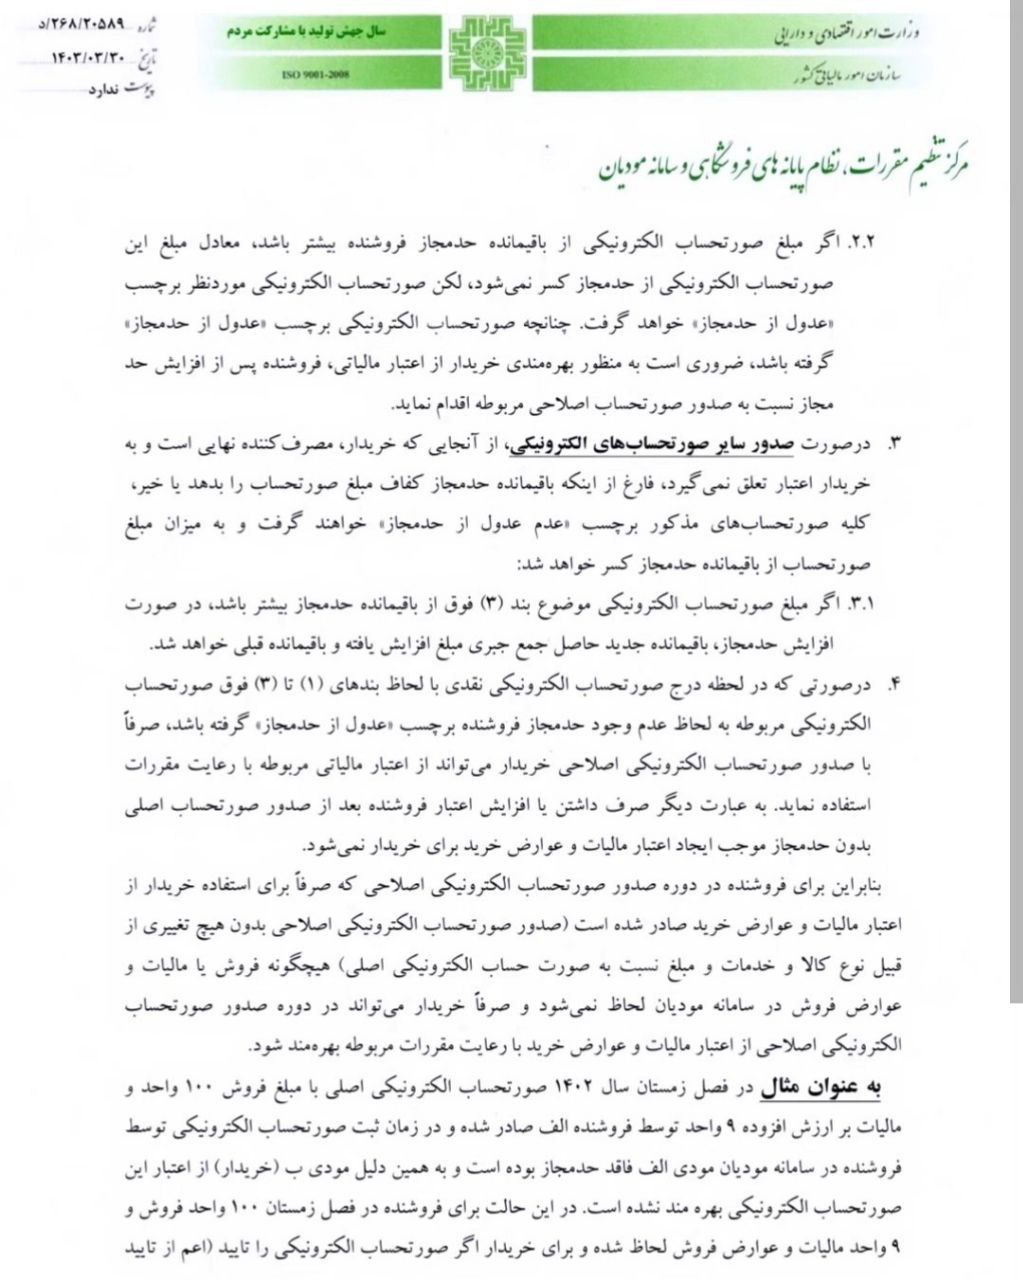 وزارت امور اقتصادی و دارایی
سازمان امور مالیاتی کشور
سال جهش تولید با مشارکت مردم
ISO 9001-2008
شماره ۲۶۸/۲۰۵۸۹/د
تاریخ ۱۴۰۳/۰۳/۳۰
پیوست ندارد
مرکز تنظیم مقررات، نظام پایانه های فروشگاهی و سامانه مودیان
۲.۲. اگر مبلغ صورتحساب الکترونیکی از باقیمانده حدمجاز فروشنده بیشتر باشد، معادل مبلغ این
صورتحساب الکترونیکی از حدمجاز کسر نمی‌شود، لکن صورتحساب الکترونیکی موردنظر برچسب
«عدول از حدمجاز» خواهد گرفت. چنانچه صورتحساب الکترونیکی برچسب «عدول از حدمجاز»
گرفته باشد، ضروری است به منظور بهره‌مندی خریدار از اعتبار مالیاتی، فروشنده پس از افزایش حد
مجاز نسبت به صدور صورتحساب اصلاحی مربوطه اقدام نماید.
۳. درصورت صدور سایر صورتحساب‌های الکترونیکی، از آنجایی که خریدار، مصرف‌کننده نهایی است و به
خریدار اعتبار تعلق نمی‌گیرد، فارغ از اینکه باقیمانده حدمجاز کفاف مبلغ صورتحساب را بدهد یا خیر،
کلیه صورتحساب‌های مذکور برچسب «عدم عدول از حدمجاز» خواهند گرفت و به میزان مبلغ
صورتحساب از باقیمانده حدمجاز کسر خواهد شد:
۳.۱. اگر مبلغ صورتحساب الکترونیکی موضوع بند (۳) فوق از باقیمانده حدمجاز بیشتر باشد، در صورت
افزایش حدمجاز، باقیمانده جدید حاصل جمع جبری مبلغ افزایش یافته و باقیمانده قبلی خواهد شد.
۴. درصورتی که در لحظه درج صورتحساب الکترونیکی نقدی با لحاظ بندهای (۱) تا (۳) فوق صورتحساب
الکترونیکی مربوطه به لحاظ عدم وجود حدمجاز فروشنده برچسب «عدول از حدمجاز» گرفته باشد، صرفاً
با صدور صورتحساب الکترونیکی اصلاحی خریدار می‌تواند از اعتبار مالیاتی مربوطه با رعایت مقررات
استفاده نماید. به عبارت دیگر صرف داشتن یا افزایش اعتبار فروشنده بعد از صدور صورتحساب اصلی
بدون حدمجاز موجب ایجاد اعتبار مالیات و عوارض خرید برای خریدار نمی‌شود.
بنابراین برای فروشنده در دوره صدور صورتحساب الکترونیکی اصلاحی که صرفاً برای استفاده خریدار از
اعتبار مالیات و عوارض خرید صادر شده است (صدور صورتحساب الکترونیکی اصلاحی بدون هیچ تغییری از
قبیل نوع کالا و خدمات و مبلغ نسبت به صورت حساب الکترونیکی اصلی) هیچگونه فروش یا مالیات و
عوارض فروش در سامانه مودیان لحاظ نمی‌شود و صرفاً خریدار می‌تواند در دوره صدور صورتحساب
الکترونیکی اصلاحی از اعتبار مالیات و عوارض خرید با رعایت مقررات مربوطه بهره‌مند شود.
به عنوان مثال در فصل زمستان سال ۱۴۰۲ صورتحساب الکترونیکی اصلی با مبلغ فروش ۱۰۰ واحد و
مالیات بر ارزش افزوده ۹ واحد توسط فروشنده الف صادر شده و در زمان ثبت صورتحساب الکترونیکی توسط
فروشنده در سامانه مودیان مودی الف فاقد حدمجاز بوده است و به همین دلیل مودی ب (خریدار) از اعتبار این
صورتحساب الکترونیکی بهره مند نشده است. در این حالت برای فروشنده در فصل زمستان ۱۰۰ واحد فروش و
۹ واحد مالیات و عوارض فروش لحاظ شده و برای خریدار اگر صورتحساب الکترونیکی را تایید (اعم از تایید